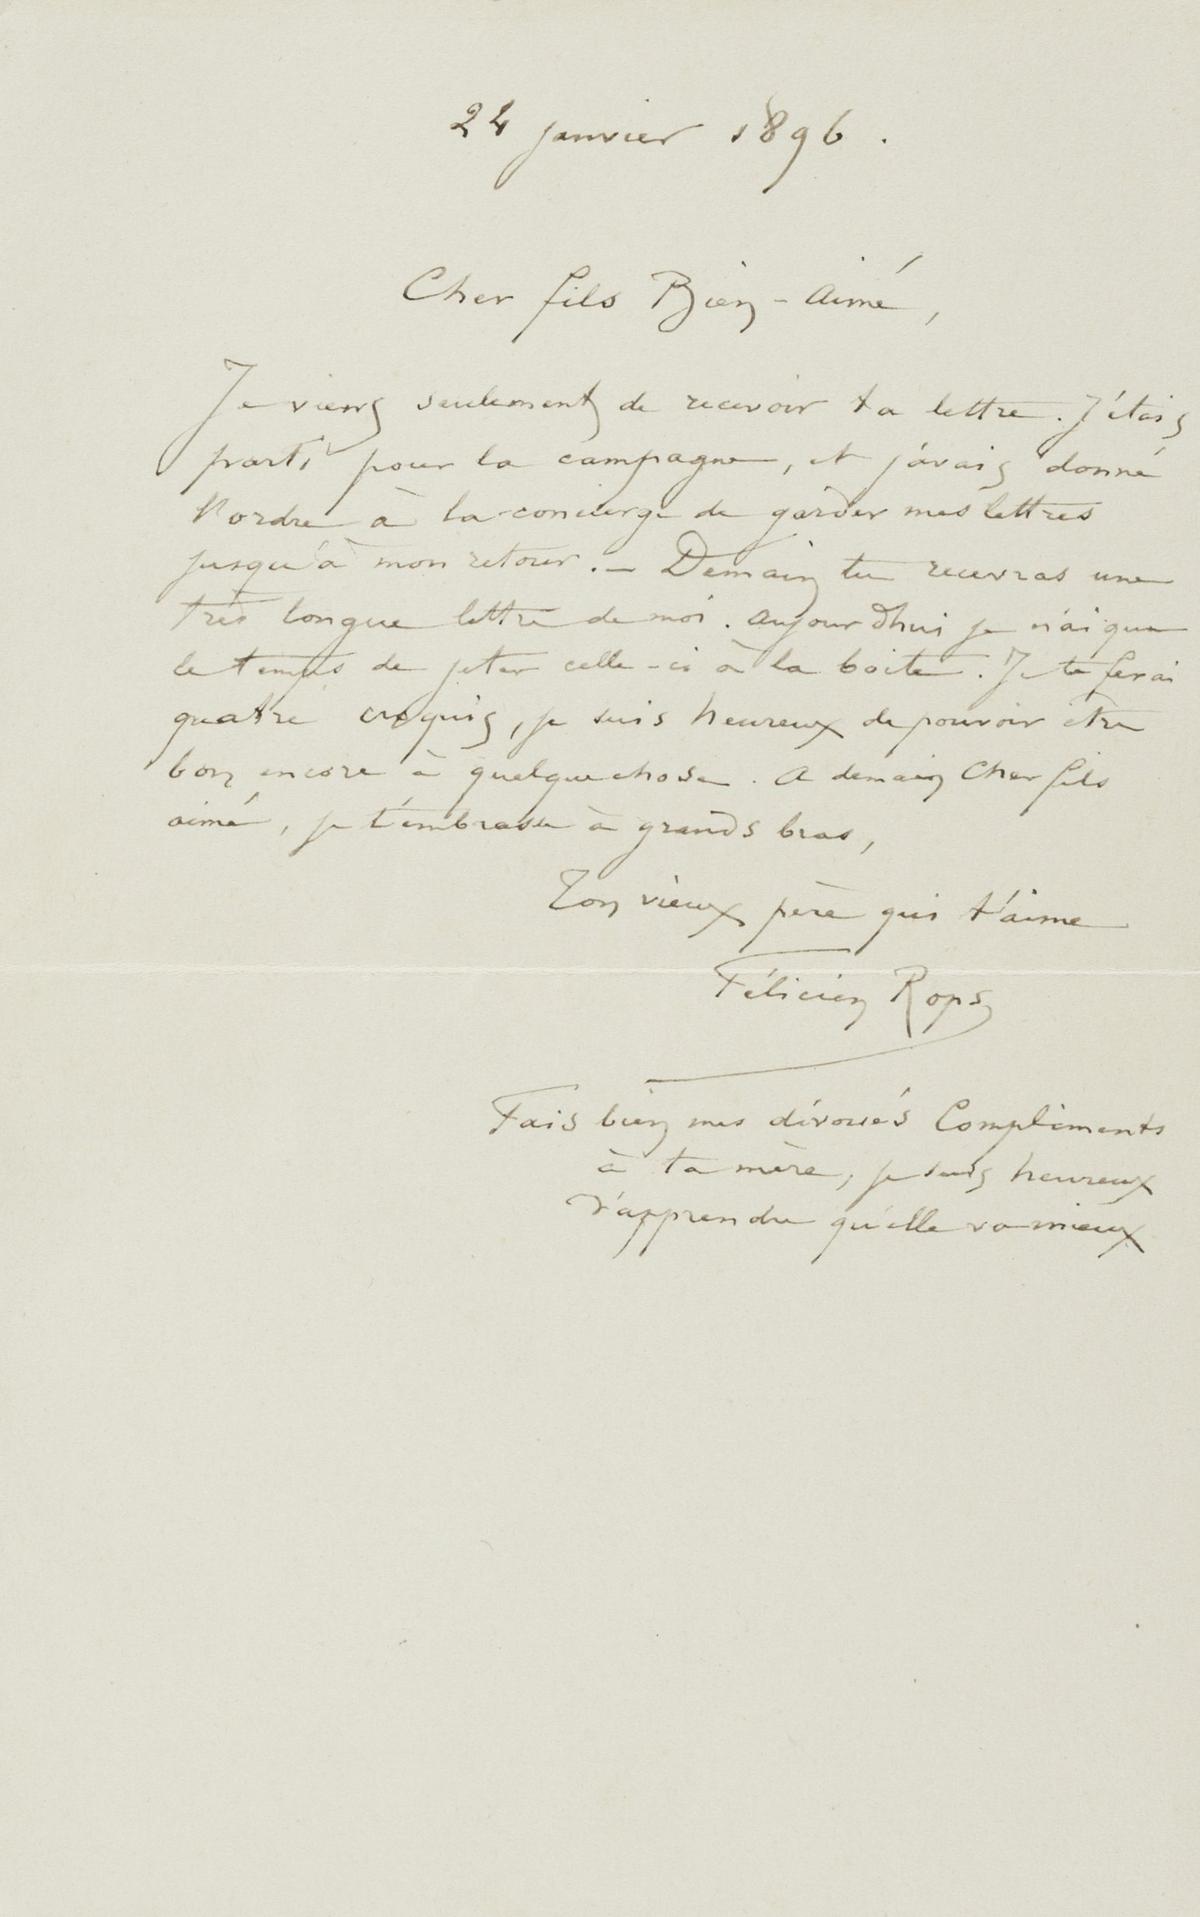 24 janvier 1896.
Cher fils Bien-Aimé,
Je viens seulement de recevoir ta lettre. J'étais
parti pour la campagne, et j'avais donné
l'ordre à la concierge de garder mes lettres
jusqu'à mon retour. — Demain tu recevras une
très longue lettre de moi. Aujourd'hui je n'ai que
le temps de jeter celle-ci à la boite. Je te ferai
quatre croquis, je suis heureux de pouvoir être
bon encore à quelque chose. A demain Cher fils
aimé, je t'embrasse à grands bras,
Ton vieux père qui t'aime
Félicien Rops
Fais bien mes dévoués Compliments
à ta mère, je suis heureux
d'apprendre qu'elle va mieux